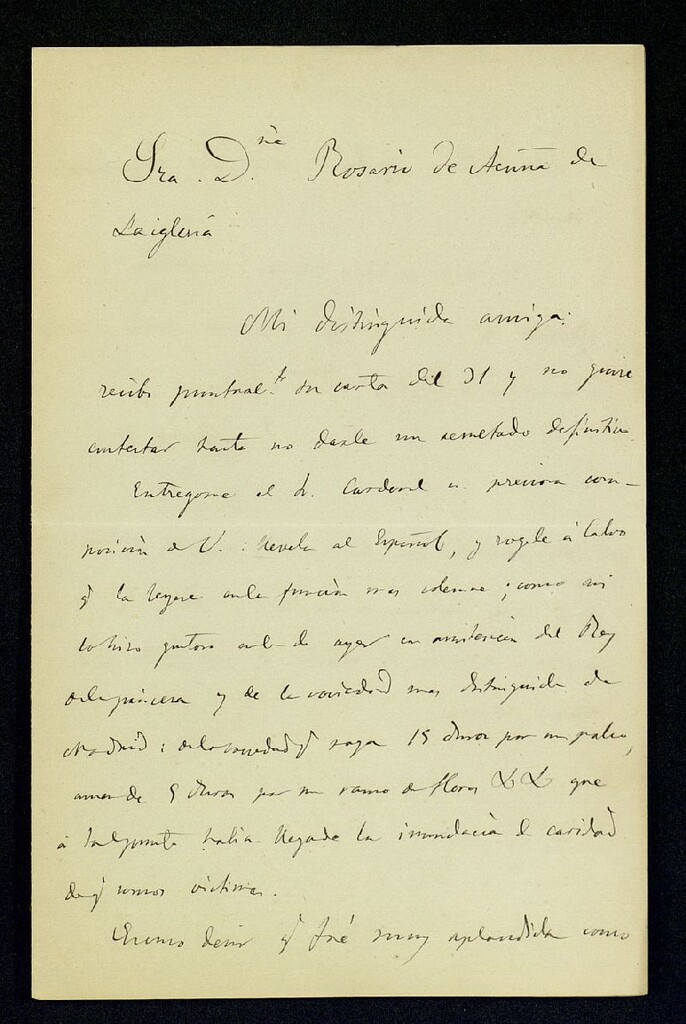 Sra. D.ña Rosario de Acuña de
Laiglesia
Mi distinguida amiga:
recibi puntual.te su carta del 31 y no quise
contestar hasta no darle un resultado definitivo.
Entregome el Sr. Cardenal la preciosa com-
posición de V.: llevela al Español, y rogele á Calvo
q la leyese en la función mas solemne; como asi
lo hizo gustoso en la de ayer con asistencia del Rey
de la princesa y de la sociedad mas distinguida de
Madrid: de la sociedad q paga 15 duros por un palco,
amen de 5 duros por un ramo de flores &. &. que
á tal punto habia llegado la inundacion de caridad
de q somos victimas.
Escuso decir q fué muy aplaudida como